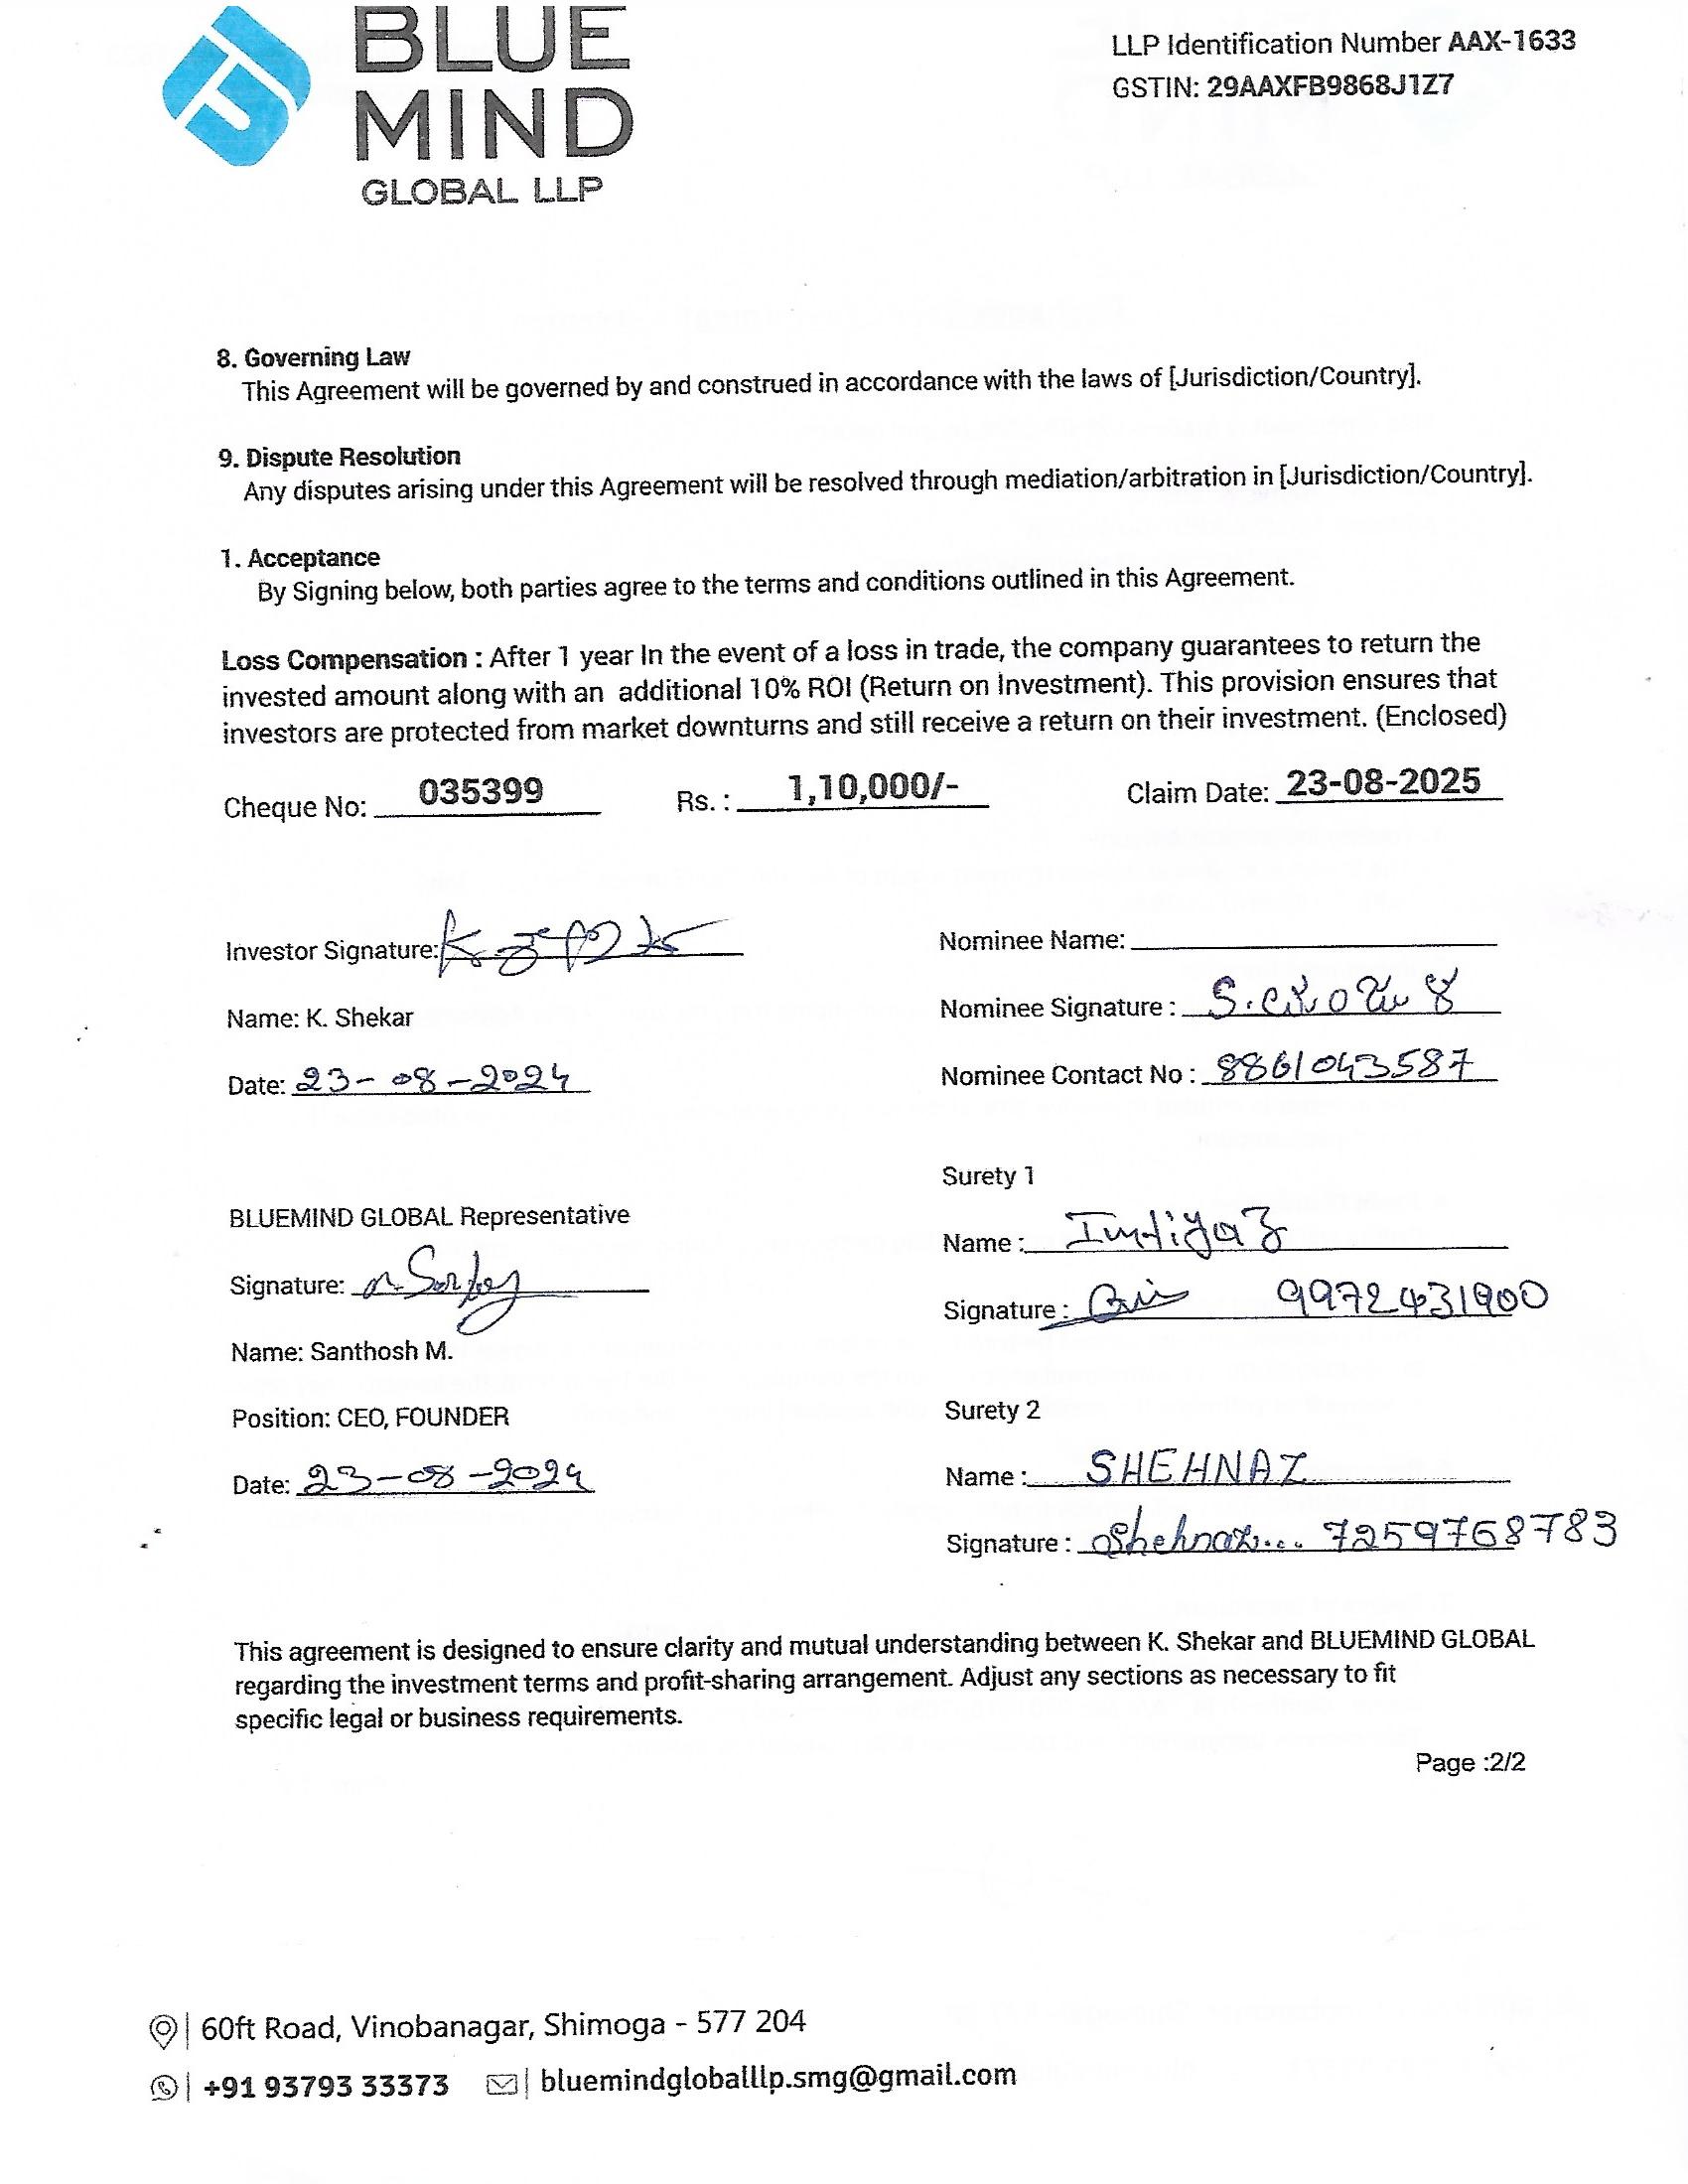 BLUE
MIND
GLOBAL LLP
LLP Identification Number AAX-1633
GSTIN: 29AAXFB9868J1Z7
8. Governing Law
This Agreement will be governed by and construed in accordance with the laws of [Jurisdiction/Country].
9. Dispute Resolution
Any disputes arising under this Agreement will be resolved through mediation/arbitration in [Jurisdiction/Country].
1. Acceptance
By Signing below, both parties agree to the terms and conditions outlined in this Agreement.
Loss Compensation : After 1 year In the event of a loss in trade, the company guarantees to return the
invested amount along with an additional 10% ROI (Return on Investment). This provision ensures that
investors are protected from market downturns and still receive a return on their investment. (Enclosed)
Cheque No: 035399 Rs. : 1,10,000/- Claim Date: 23-08-2025
Investor Signature:
Name: K. Shekar
Date: 23-08-2024
Nominee Name:
Nominee Signature :
Nominee Contact No : 8861043587
BLUEMIND GLOBAL Representative
Signature:
Name: Santhosh M.
Position: CEO, FOUNDER
Date: 23-08-2024
Surety 1
Name : Imtiyaz
Signature : 9972431900
Surety 2
Name : SHEHNAZ
Signature : Shehnaz... 7259768783
This agreement is designed to ensure clarity and mutual understanding between K. Shekar and BLUEMIND GLOBAL
regarding the investment terms and profit-sharing arrangement. Adjust any sections as necessary to fit
specific legal or business requirements.
Page :2/2
60ft Road, Vinobanagar, Shimoga - 577 204
+91 93793 33373 bluemindgloballlp.smg@gmail.com